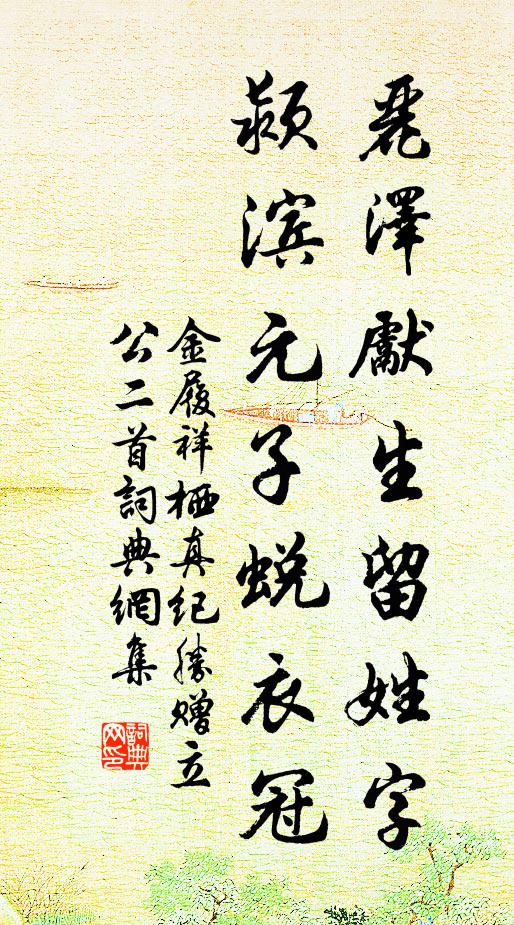 麗澤獻生留姓字
颍滨元子蜕衣冠
金履祥栖真紀勝贈立
公二首詞典網集
詞典网印